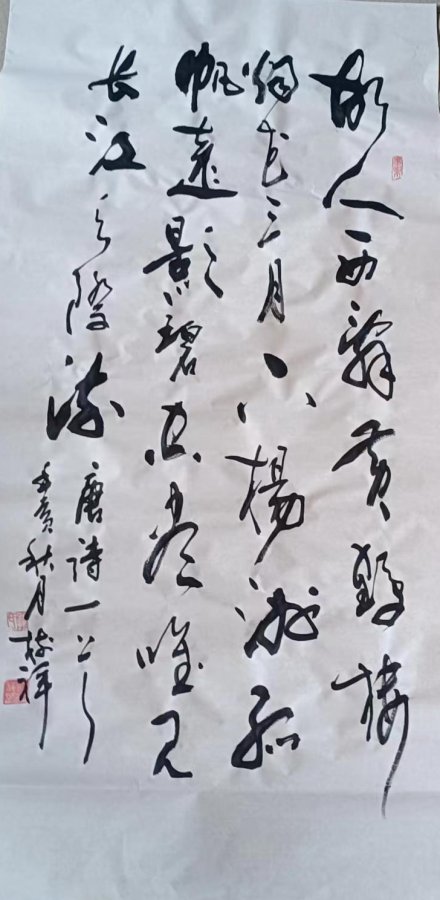 故人西辞黄鹤楼
烟花三月下楊洲孤
帆遠影碧空尽唯见
长江天际流
唐诗一首
壬寅秋月